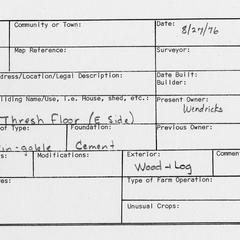 Community or Town:
Date:
8/27/76
Map Reference:
Surveyor:
ddress/Location/Legal Description:
Date Built:
Builder:
ilding Name/Use, i.e. House, shed, etc.:
Thresh Floor (E Side)
Present Owner:
Wendricks
of Type:
Foundation:
Previous Owner:
in-gable
Cement
s:
Modifications:
Exterior:
Comme
Wood + Log
res:
Type of Farm Operation:
Unusual Crops: